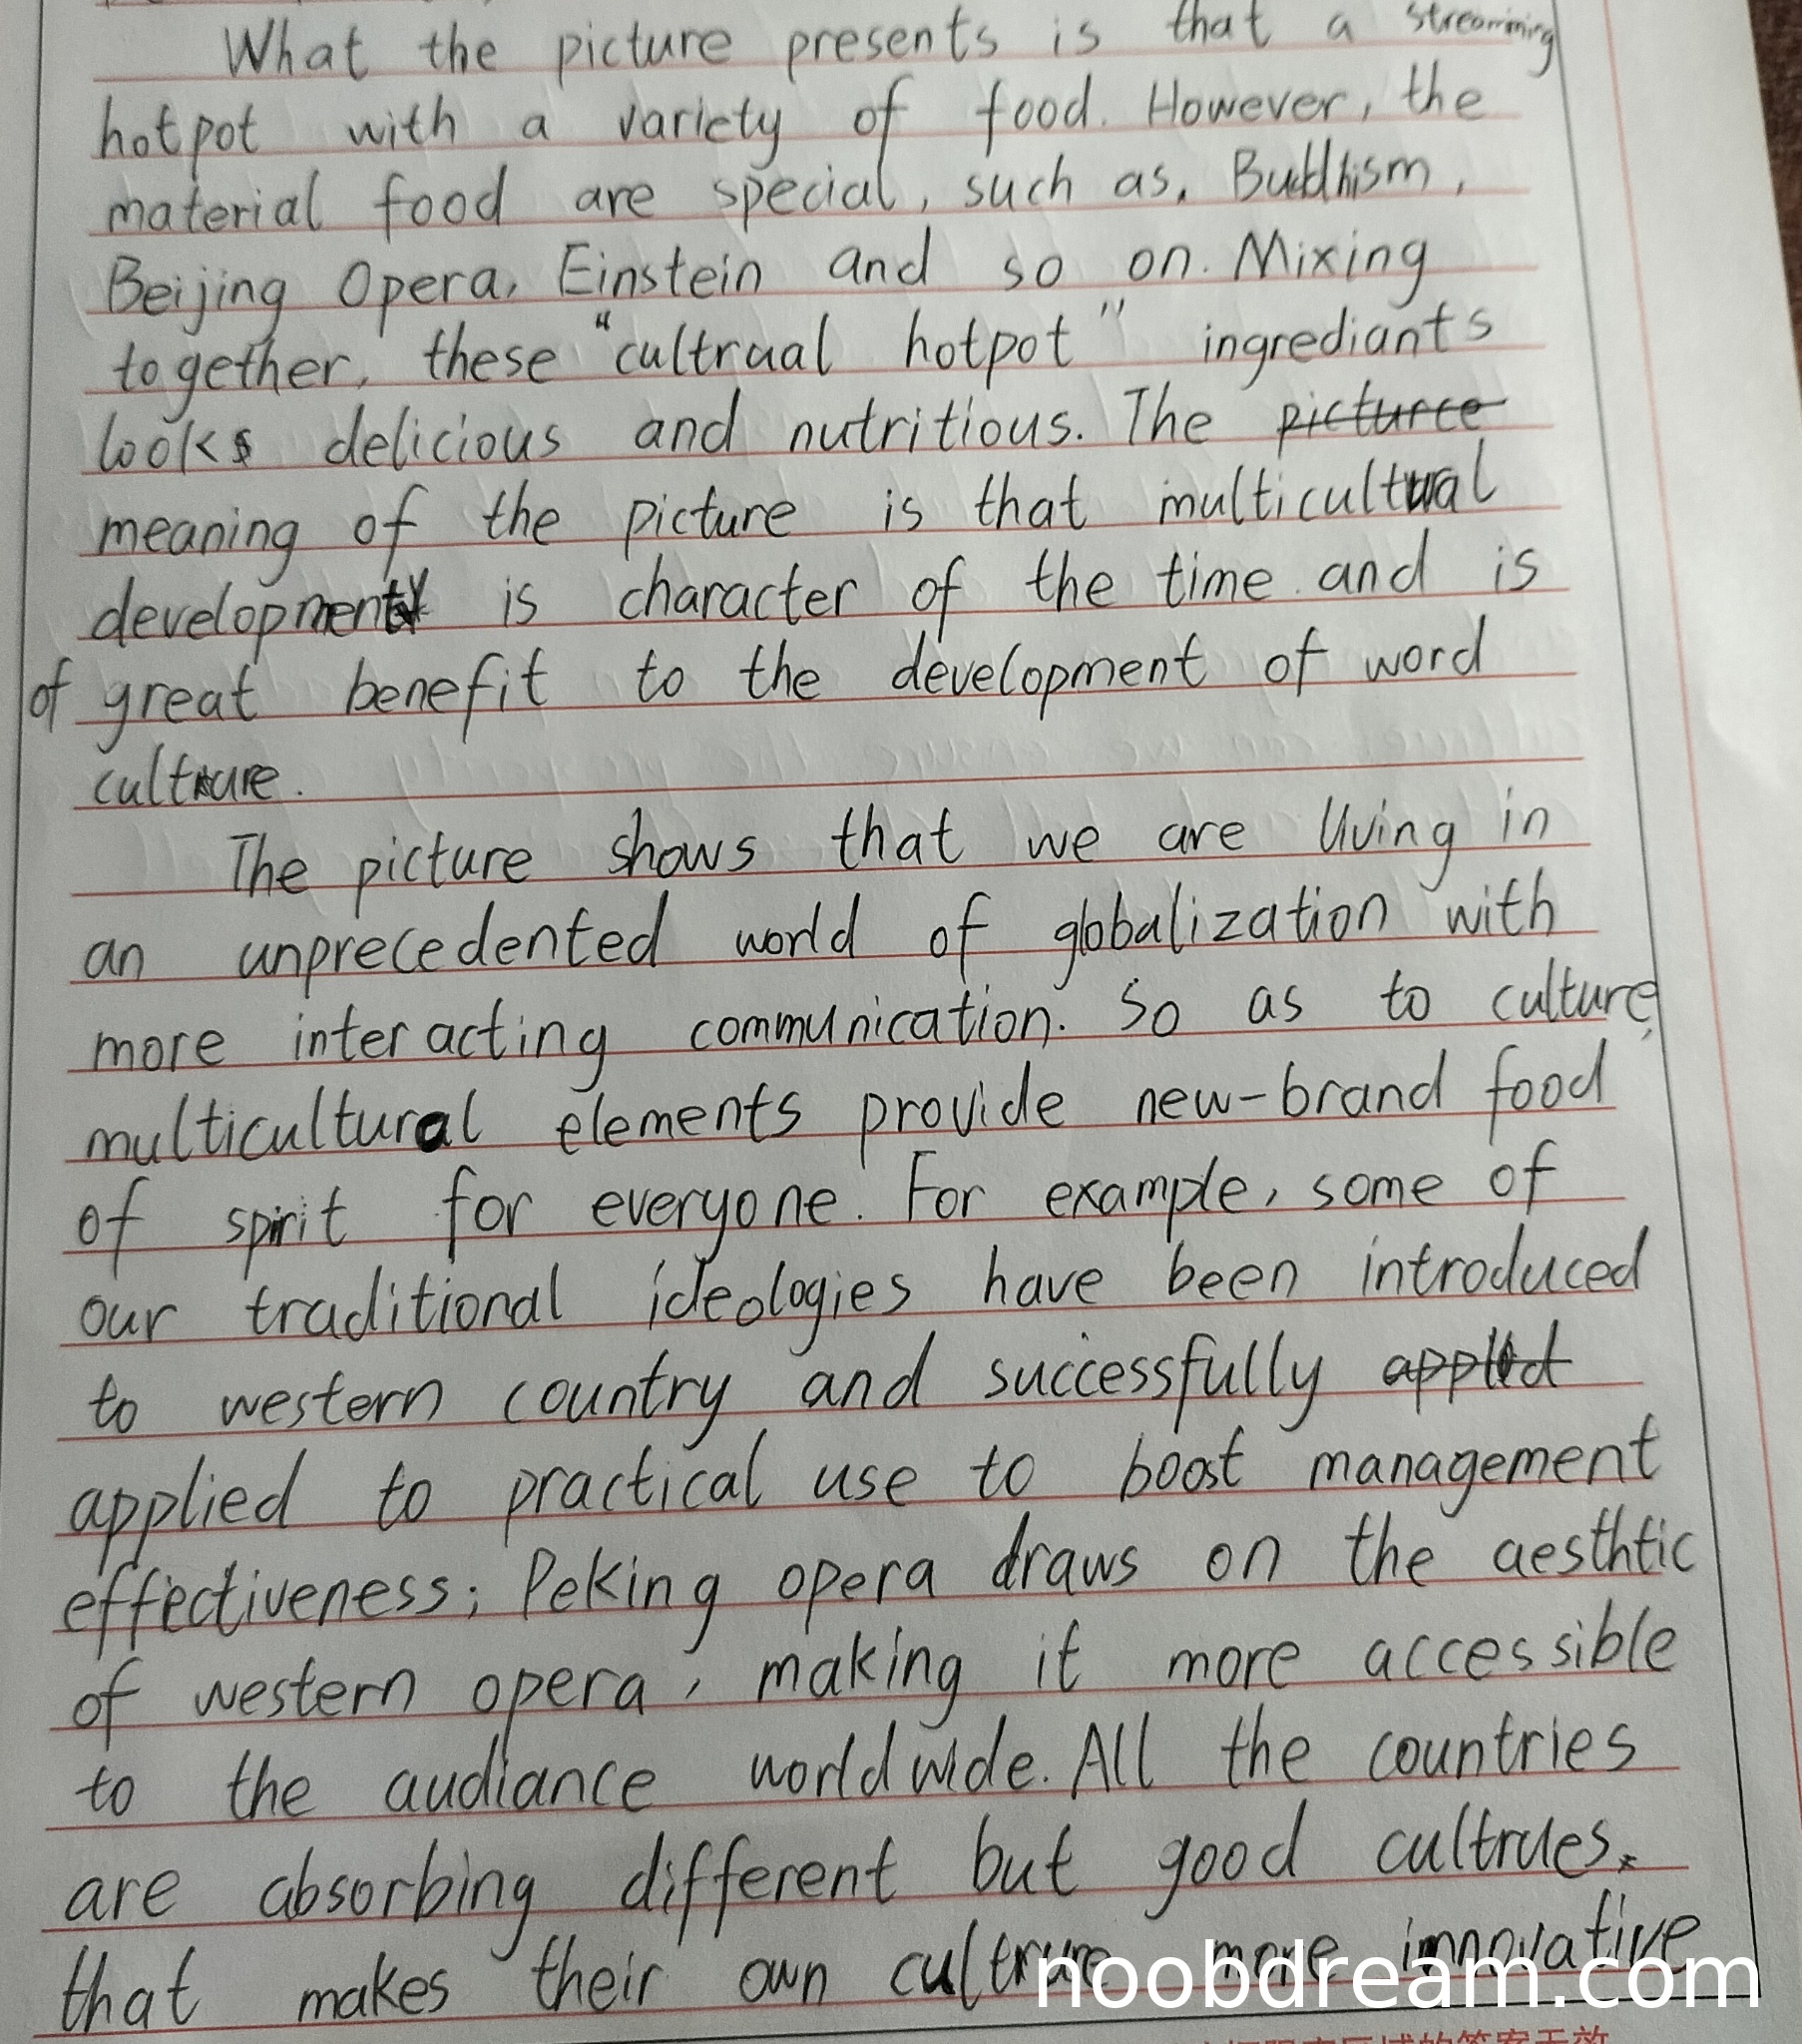 What the picture presents is that a streamming
hotpot with a variety of food. However, the
material food are special, such as, Buddhism,
Beijing Opera, Einstein and so on. Mixing
together, these "cultraal hotpot" ingrediants
looks delicious and nutritious. The picturce
meaning of the picture is that multicultural
development is character of the time and is
of great benefit to the development of word
culture.
The picture shows that we are living in
an unprecedented world of globalization with
more interacting communication. So as to culture,
multicultural elements provide new-brand food
of spirit for everyone. For example, some of
our traditional ideologies have been introduced
to western country and successfully
applied to practical use to boost management
effectiveness; Peking opera draws on the aesthtic
of western opera, making it more accessible
to the audiance worldwide. All the countries
are absorbing different but good cultrues.
that makes their own cultrure more innovative
noobdream.com